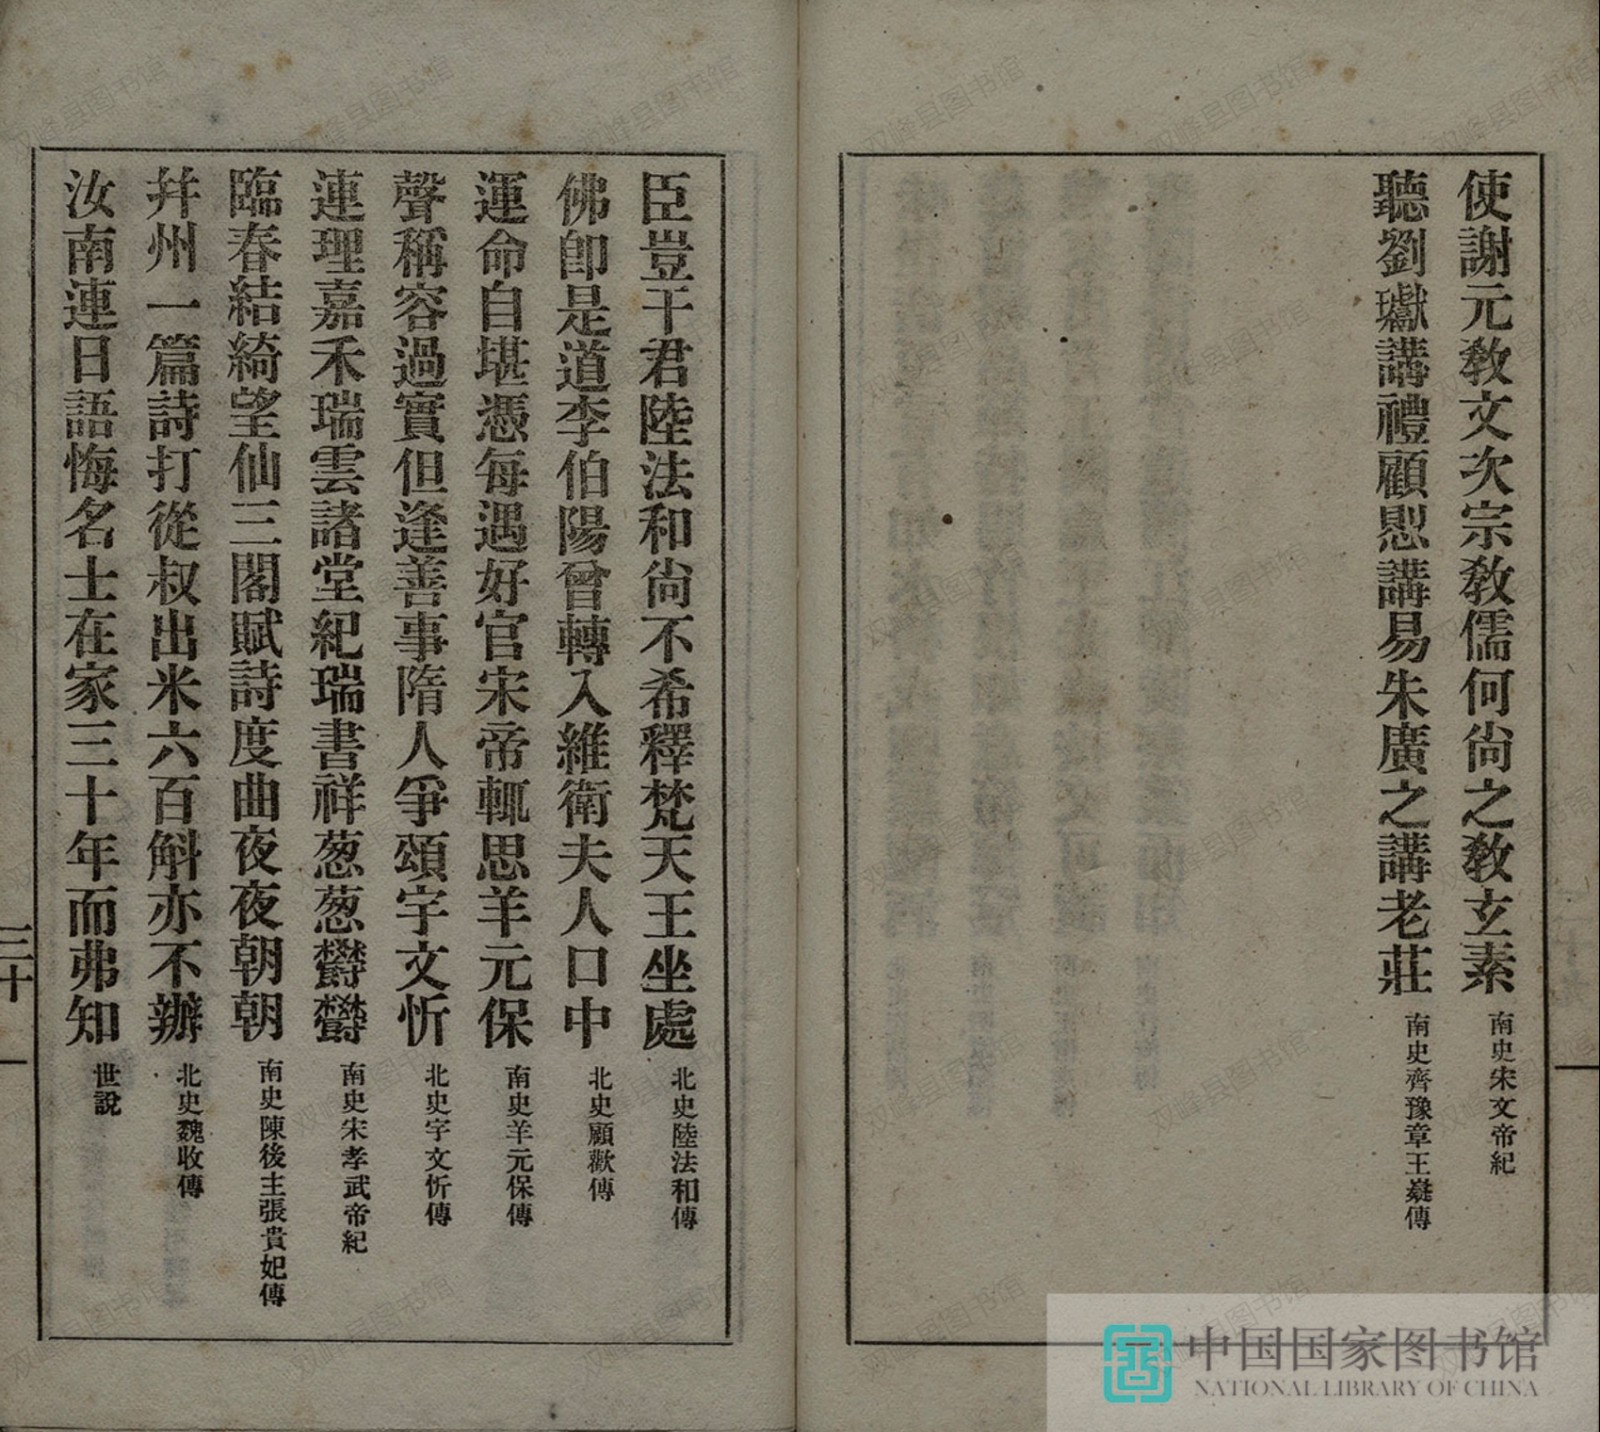 使謝元教文次宗教儒何尚之教玄素 南史宋文帝紀
聽劉瓛講禮顧愳講易朱廣之講老莊 南史齊豫章王嶷傳
臣豈干君陸法和尚不希釋梵天王坐處 北史陸法和傳
佛卽是道李伯陽曾轉入維衛夫人口中 北史顧歡傳
運命自堪憑每遇好官宋帝輒思羊元保 南史羊元保傳
聲稱容過實但逢善事隋人爭頌宇文忻 北史宇文忻傳
連理嘉禾瑞雲諸堂紀瑞書祥葱葱欝欝 南史宋孝武帝紀
臨春結綺望仙三閣賦詩度曲夜夜朝朝 南史陳後主張貴妃傳
幷州一篇詩打從叔出米六百斛亦不辦 北史魏收傳
汝南連日語悔名士在家三十年而弗知 世說
三十
中国国家图书馆
NATIONAL LIBRARY OF CHINA
双峰县图书馆